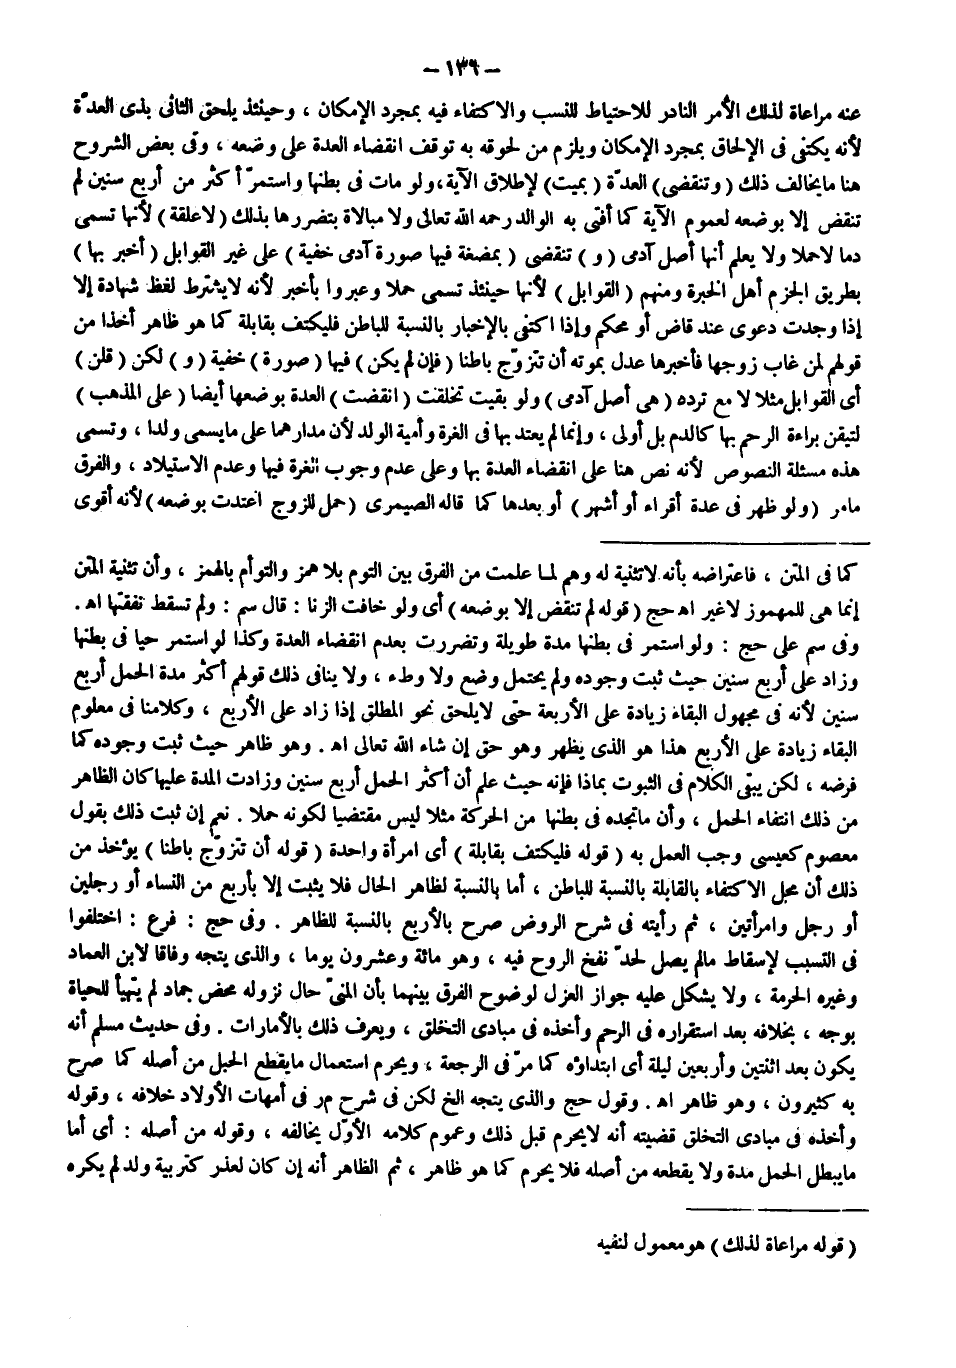 — ١٣٦ —
عنه مراعاة لذلك الأمر النادر للاحتياط للنسب والاكتفاء فيه بمجرد الإمكان ، وحينئذ يلحق الثانى بذى العدّة
لأنه يكتفى فى الإلحاق بمجرد الإمكان ويلزم من لحوقه به توقف انقضاء العدة على وضعه ، وفى بعض الشروح
هنا مايخالف ذلك ( وتنقضى ) العدّة ( بميت ) لإطلاق الآية، ولو مات فى بطنها واستمرّ أكثر من أربع سنين لم
تنقض إلا بوضعه لعموم الآية كما أفتى به الوالد رحمه الله تعالى ولا مبالاة بتضررها بذلك ( لاعلقة ) لأنها تسمى
دما لاحملا ولا يعلم أنها أصل آدمى ( و ) تنقضى ( بمضغة فيها صورة آدمى خفية ) على غير القوابل ( أخبر بها )
بطريق الجزم أهل الخبرة ومنهم ( القوابل ) لأنها حينئذ تسمى حملا وعبروا بأخبر لأنه لايشترط لفظ شهادة إلا
إذا وجدت دعوى عند قاض أو محكم وإذا اكتفى بالإخبار بالنسبة للباطن فليكتف بقابلة كما هو ظاهر أخذا من
قولهم لمن غاب زوجها فأخبرها عدل بموته أن تتزوّج باطنا ( فإن لم يكن ) فيها ( صورة ) خفية ( و ) لكن ( قلن )
أى القوابل مثلا لا مع تردد ( هى أصل آدمى ) ولو بقيت تخلقت ( انقضت ) العدة بوضعها أيضا ( على المذهب )
لتيقن براءة الرحم بها كالدم بل أولى ، وإنما لم يعتد بها فى الغرة وأمية الولد لأن مدارهما على مايسمى ولدا ، وتسمى
هذه مسئلة النصوص لأنه نص هنا على انقضاء العدة بها وعلى عدم وجوب الغرة فيها وعدم الاستيلاد ، والفرق
مامر ( ولو ظهر فى عدة أقراء أو أشهر ) أو بعدها كما قاله الصيمرى ( حمل للزوج اعتدت بوضعه ) لأنه أقوى
كما فى المتن ، فاعتراضه بأنه لاتثنية له وهم لما علمت من الفرق بين التوم بلا همز والتوأم بالهمز ، وأن تثنية المتن
إنما هى للمهموز لاغير اه حج ( قوله لم تنقض إلا بوضعه ) أى ولو خافت الزنا : قال سم : ولم تسقط نفقتها اه .
وفى سم على حج : ولو استمر فى بطنها مدة طويلة وتضررت بعدم انقضاء العدة وكذا لو استمر حيا فى بطنها
وزاد على أربع سنين حيث ثبت وجوده ولم يحتمل وضع ولا وطء ، ولا ينافى ذلك قولهم أكثر مدة الحمل أربع
سنين لأنه فى مجهول البقاء زيادة على الأربعة حتى لايلحق نحو المطلق إذا زاد على الأربع ، وكلامنا فى معلوم
البقاء زيادة على الأربع هذا هو الذى يظهر وهو حق إن شاء الله تعالى اه . وهو ظاهر حيث ثبت وجوده كما
فرضه ، لكن يبقى الكلام فى الثبوت بماذا فإنه حيث علم أن أكثر الحمل أربع سنين وزادت المدة عليها كان الظاهر
من ذلك انتفاء الحمل ، وأن ماتجده فى بطنها من الحركة مثلا ليس مقتضيا لكونه حملا . نعم إن ثبت ذلك بقول
معصوم كعيسى وجب العمل به ( قوله فليكتف بقابلة ) أى امرأة واحدة ( قوله أن تتزوّج باطنا ) يؤخذ من
ذلك أن محل الاكتفاء بالقابلة بالنسبة للباطن ، أما بالنسبة لظاهر الحال فلا يثبت إلا بأربع من النساء أو رجلين
أو رجل وامرأتين ، ثم رأيته فى شرح الروض صرح بالأربع بالنسبة للظاهر . وفى حج : فرع : اختلفوا
فى التسبب لإسقاط مالم يصل لحدّ نفخ الروح فيه ، وهو مائة وعشرون يوما ، والذى يتجه وفاقا لابن العماد
وغيره الحرمة ، ولا يشكل عليه جواز العزل لوضوح الفرق بينهما بأن المنىّ حال نزوله محض جماد لم يتهيأ للحياة
بوجه ، بخلافه بعد استقراره فى الرحم وأخذه فى مبادى التخلق ، ويعرف ذلك بالأمارات . وفى حديث مسلم أنه
يكون بعد اثنتين وأربعين ليلة أى ابتداؤه كما مرّ فى الرجعة ، ويحرم استعمال مايقطع الحبل من أصله كما صرح
به كثيرون ، وهو ظاهر اه . وقول حج والذى يتجه الخ لكن فى شرح مر فى أمهات الأولاد خلافه ، وقوله
وأخذه فى مبادى التخلق قضيته أنه لايحرم قبل ذلك وعموم كلامه الأوّل يخالفه ، وقوله من أصله : أى أما
مايبطل الحمل مدة ولا يقطعه من أصله فلا يحرم كما هو ظاهر ، ثم الظاهر أنه إن كان لعذر كتربية ولد لم يكره
( قوله مراعاة لذلك ) هو معمول لنفيه